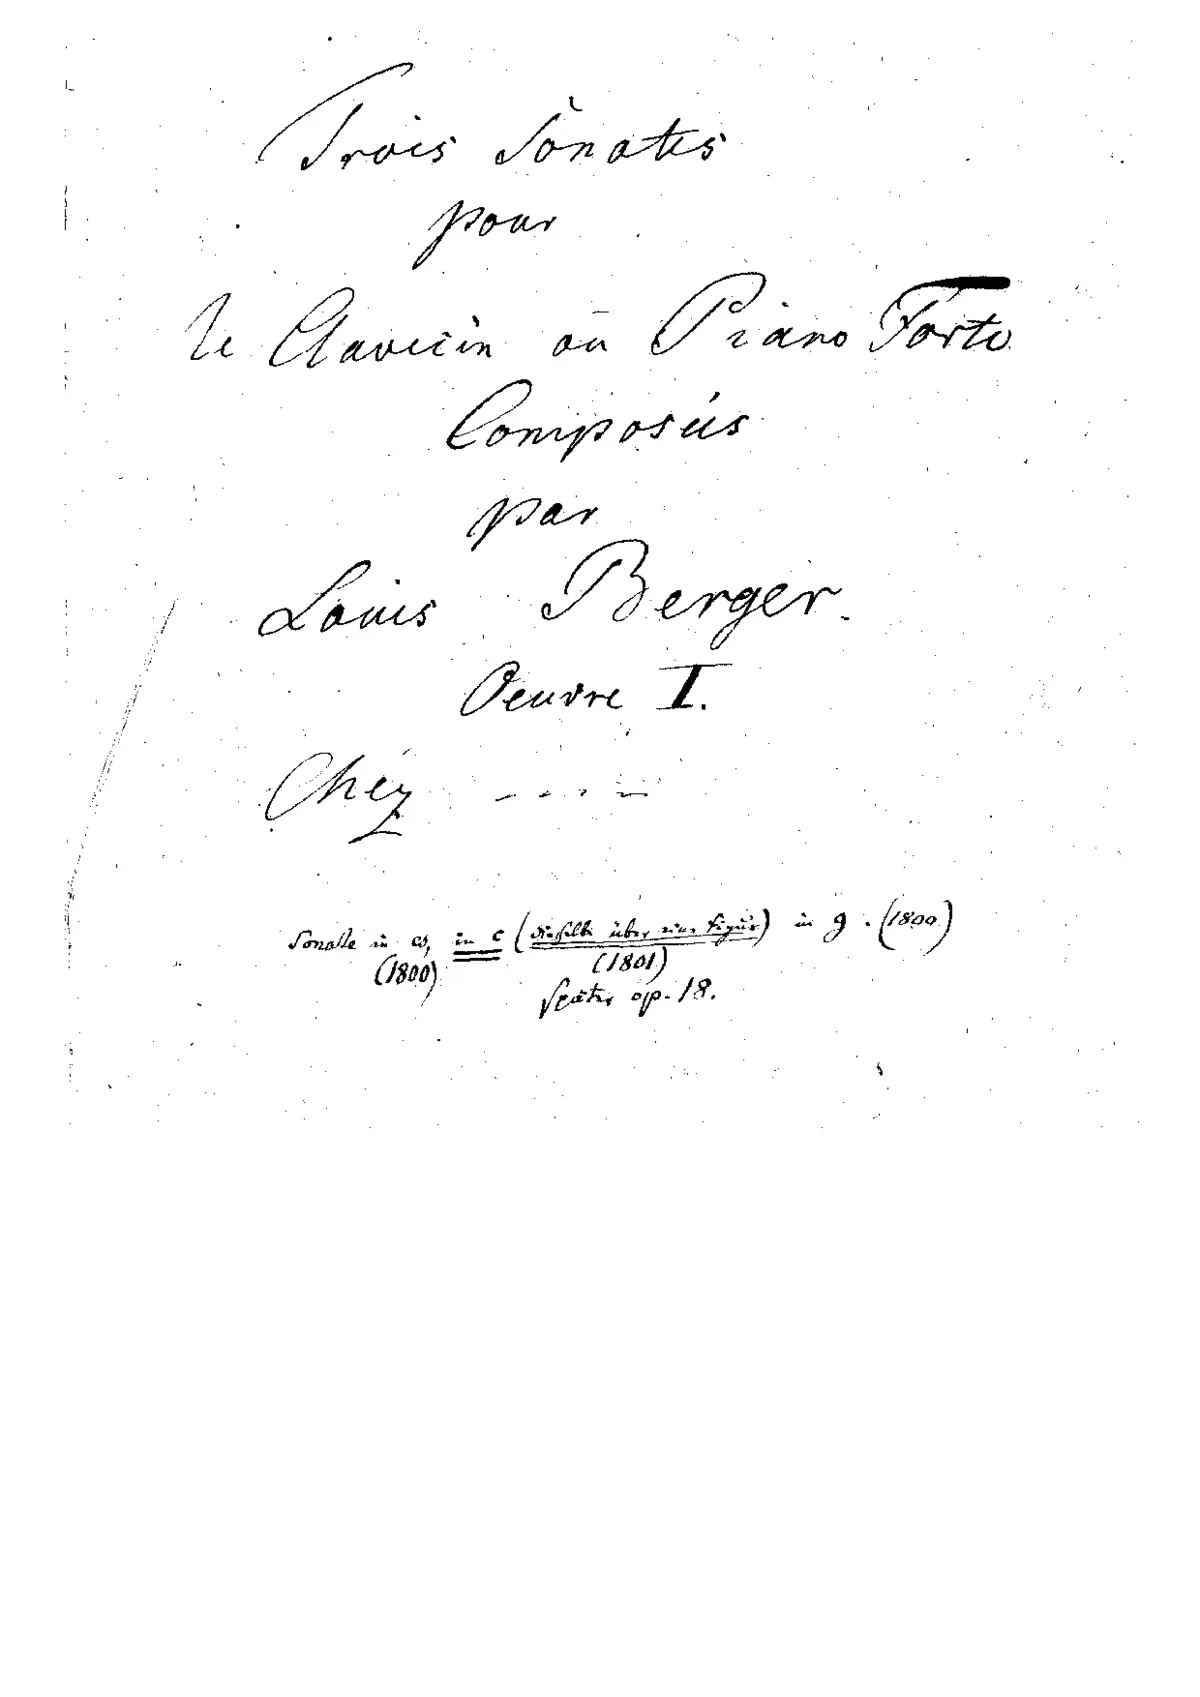 Trois Sonates
pour
le Clavecin ou Piano Forte
Composés
par
Louis Berger.
Oeuvre I.
Chéz - - - - -
Sonate in es, in c (dieselbe über eine Figur) in g. (1800)
(1800) (1801)
Später op. 18.